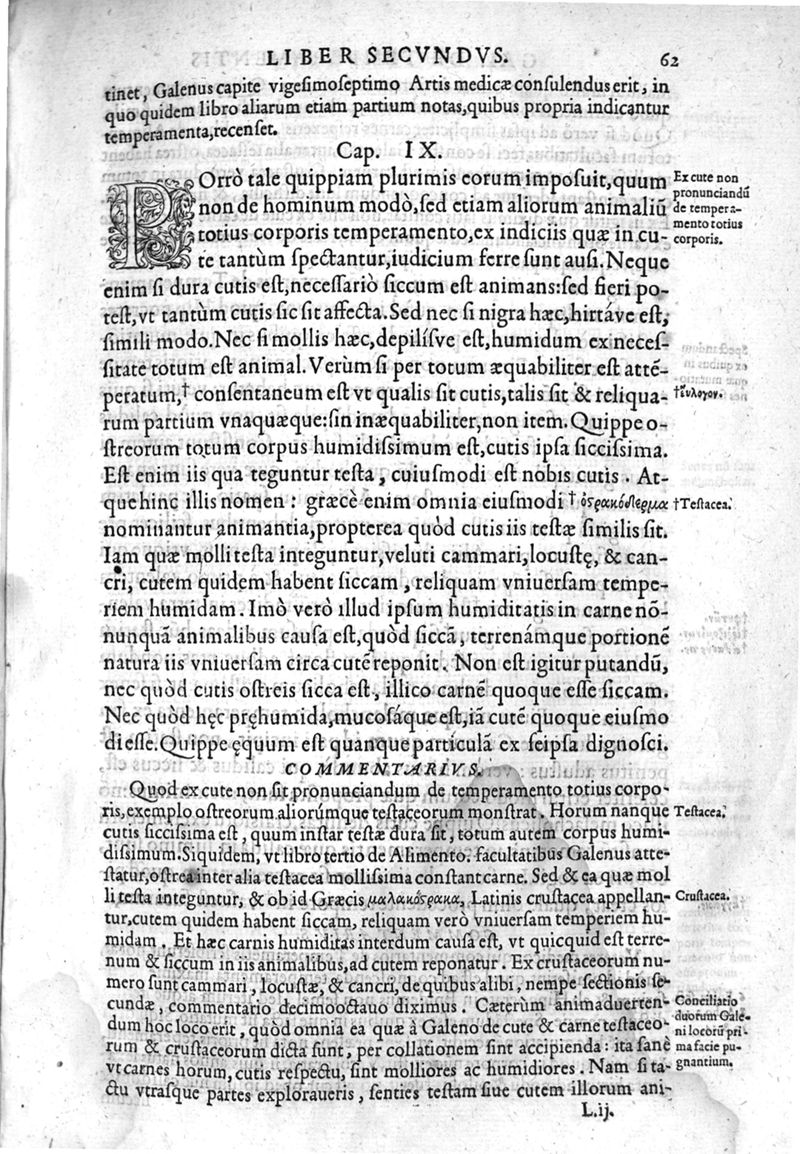 LIBER SECVNDVS. 62
tinet, Galenus capite vigesimoseptimo Artis medicæ consulendus erit, in
quo quidem libro aliarum etiam partium notas, quibus propria indicantur
temperamenta, recenset.
Cap. IX.
POrrò tale quippiam plurimis eorum imposuit, quum
non de hominum modò, sed etiam aliorum animaliū
totius corporis temperamento, ex indiciis quæ in cu-
te tantùm spectantur, iudicium ferre sunt ausi. Neque
Ex cute non
pronunciandū
de tempera-
mento totius
corporis.
enim si dura cutis est, necessariò siccum est animans: sed fieri po-
test, vt tantùm cutis sic sit affecta. Sed nec si nigra hæc, hirtáve est,
simili modo. Nec si mollis hæc, depilísve est, humidum ex neces-
sitate totum est animal. Verùm si per totum æquabiliter est attē-
peratum, † consentaneum est vt qualis sit cutis, talis sit & reliqua-
† εὔλογον.
rum partium vnaquæque: sin inæquabiliter, non item. Quippe o-
streorum totum corpus humidissimum est, cutis ipsa siccissima.
Est enim iis qua teguntur testa, cuiusmodi est nobis cutis. At-
que hinc illis nomen: græcè enim omnia eiusmodi † ὀστρακόδερμα
† Testacea.
nominantur animantia, propterea quòd cutis iis testæ similis sit.
Iam quæ molli testa integuntur, veluti cammari, locustę, & can-
cri, cutem quidem habent siccam, reliquam vniuersam tempe-
riem humidam. Imò verò illud ipsum humiditatis in carne nō-
nunquā animalibus causa est, quòd siccā, terrenámque portionē
natura iis vniuersam circa cutē reponit. Non est igitur putandū,
nec quòd cutis ostreis sicca est, illico carnē quoque esse siccam.
Nec quòd hęc pręhumida, mucosáque est, iā cutē quoque eiusmo
di esse. Quippe ęquum est quanque particulā ex seipsa dignosci.
COMMENTARIVS.
Quod ex cute non sit pronunciandum de temperamento totius corpo-
ris, exemplo ostreorum aliorúmque testaceorum monstrat. Horum nanque
Testacea.
cutis siccissima est, quum instar testæ dura sit, totum autem corpus humi-
dissimum. Siquidem, vt libro tertio de Alimento. facultatibus Galenus atte-
statur, ostrea inter alia testacea mollissima constant carne. Sed & ea quæ mol
li testa integuntur, & ob id Græcis μαλακόστρακα, Latinis crustacea appellan-
Crustacea.
tur, cutem quidem habent siccam, reliquam verò vniuersam temperiem hu-
midam. Et hæc carnis humiditas interdum causa est, vt quicquid est terre-
num & siccum in iis animalibus, ad cutem reponatur. Ex crustaceorum nu-
mero sunt cammari, locustæ, & cancri, de quibus alibi, nempe sectionis se-
cundæ, commentario decimooctauo diximus. Cæterùm animaduerten-
dum hoc loco erit, quòd omnia ea quæ à Galeno de cute & carne testaceo-
rum & crustaceorum dicta sunt, per collationem sint accipienda: ita sanè
vt carnes horum, cutis respectu, sint molliores ac humidiores. Nam si ta-
Conciliatio
duorum Gale-
ni locorū pri-
ma facie pu-
gnantium.
ctu vtrasque partes exploraueris, senties testam siue cutem illorum ani-
L.ij.